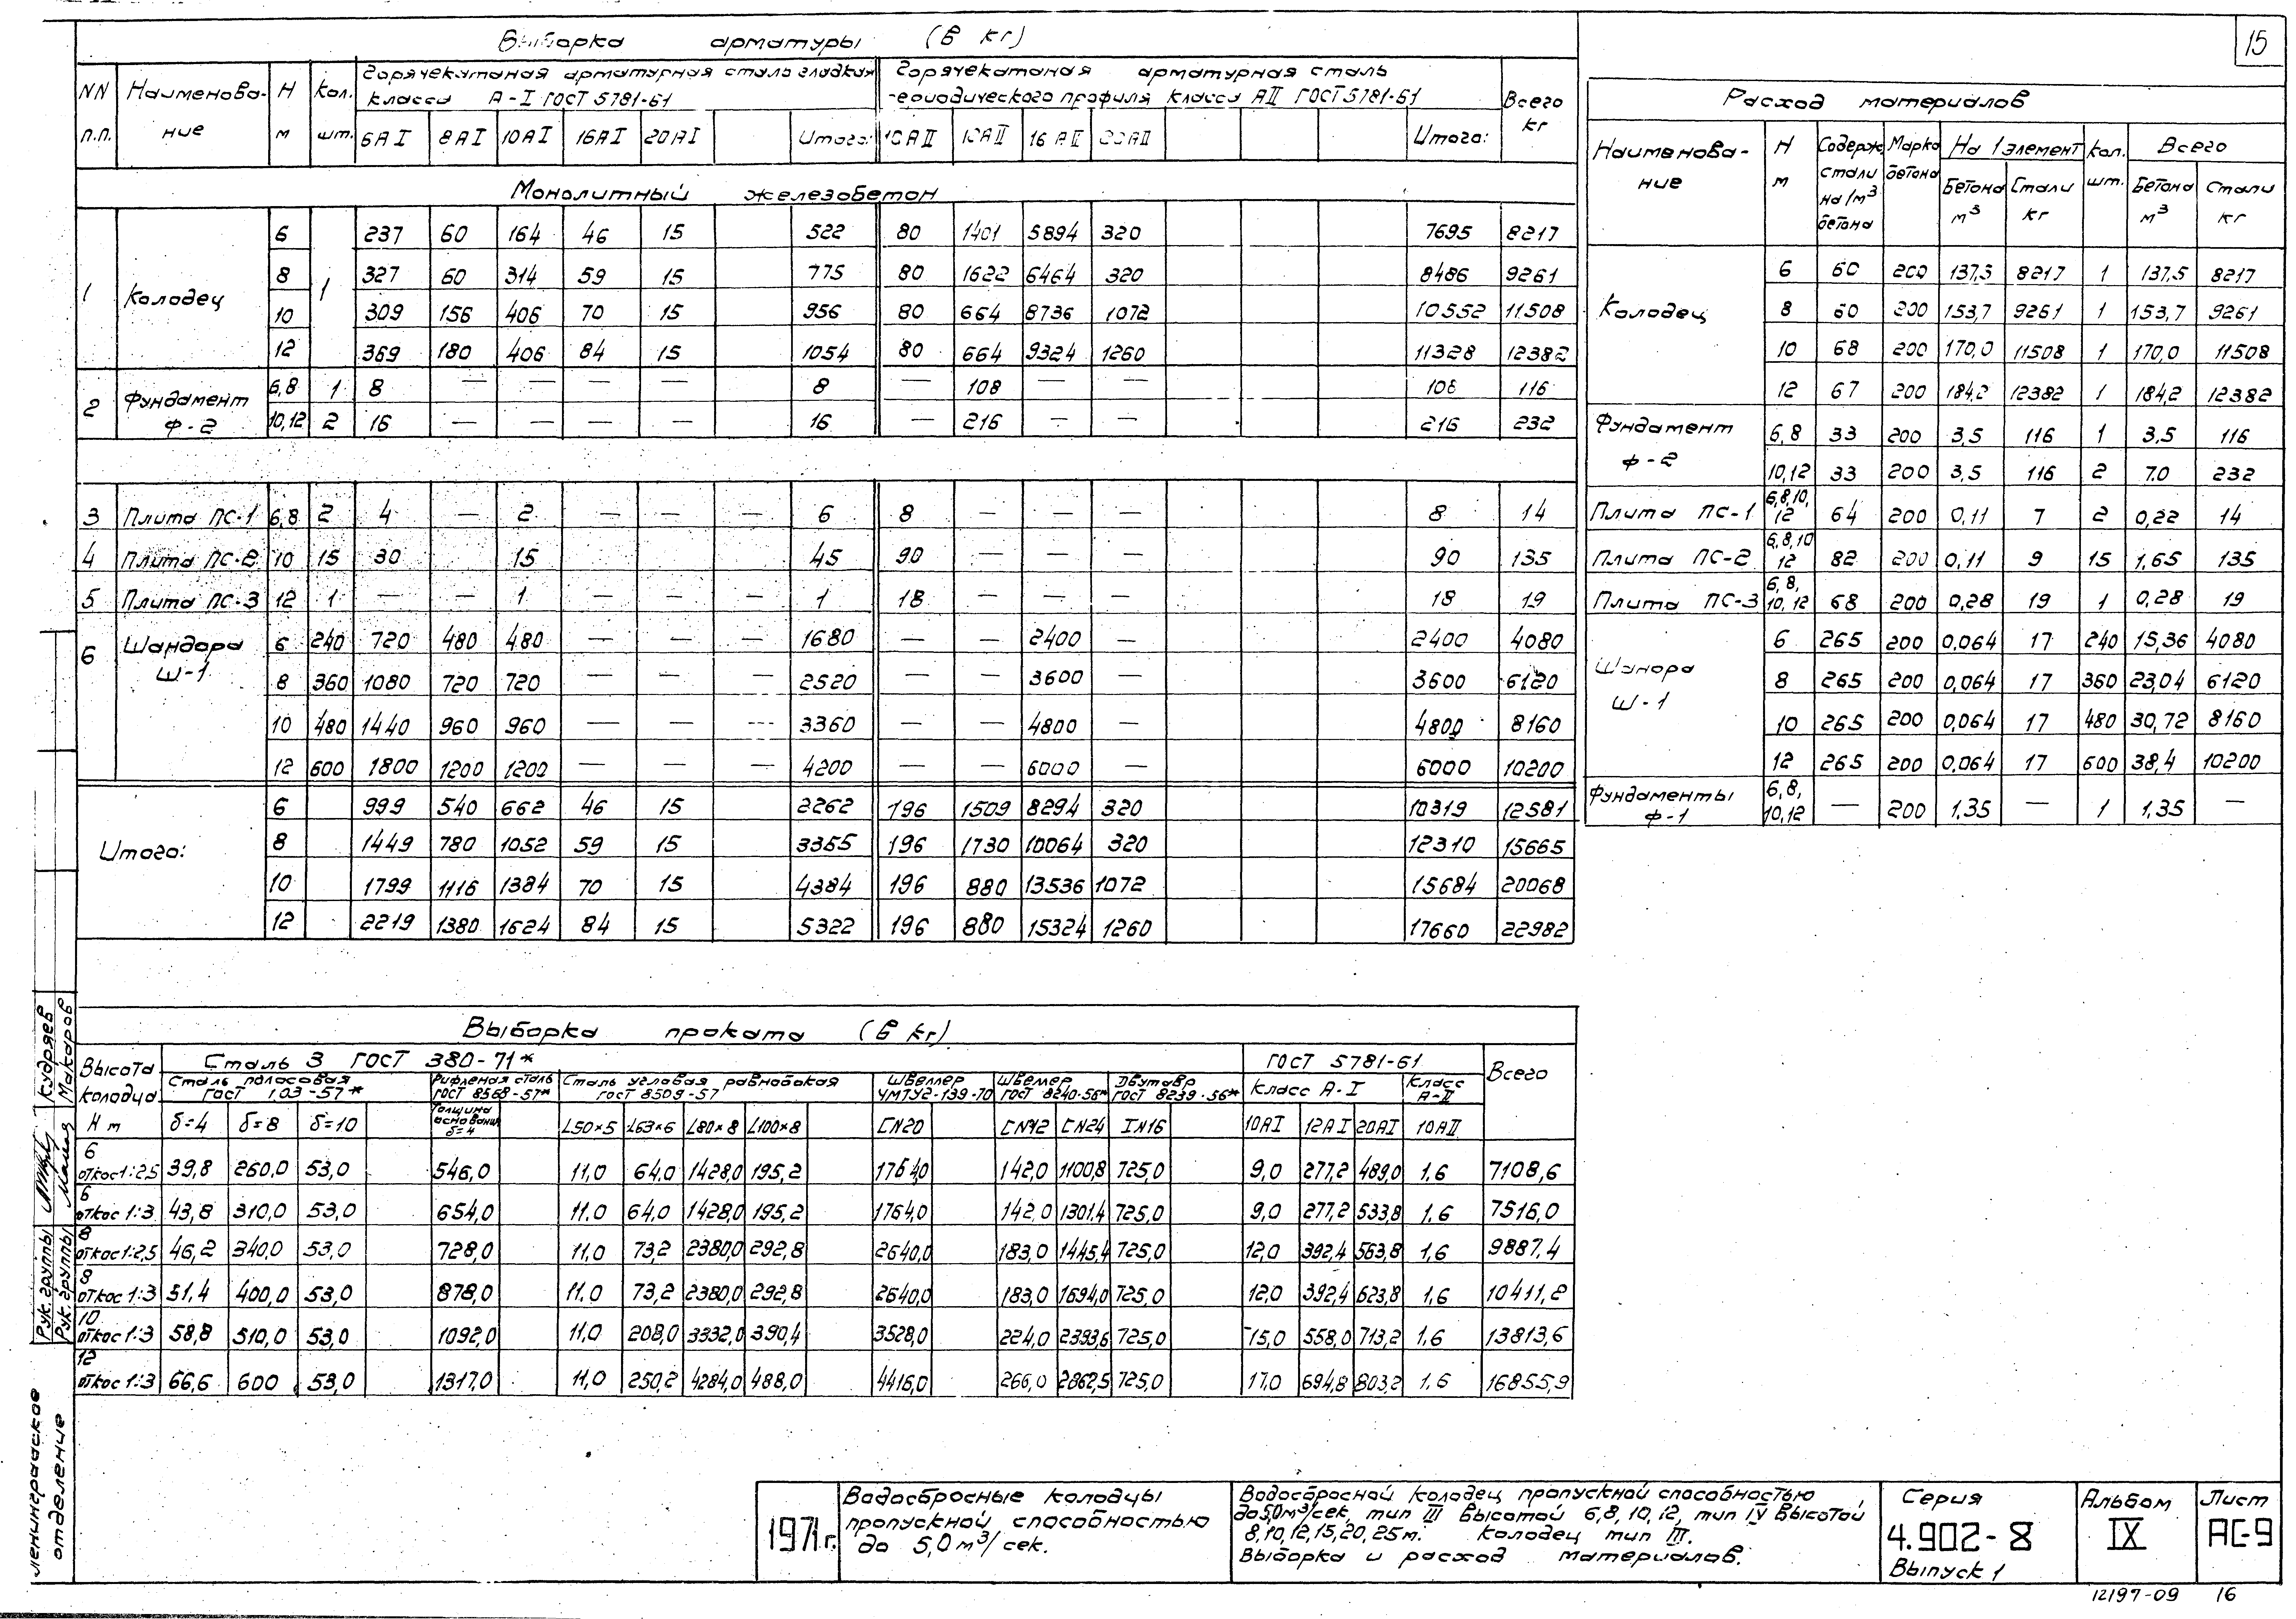 15
Выборка арматуры (в кг)
NN п.п. | Наименование | H м | Кол. шт. | Горячекатаная арматурная сталь гладкая класса А-I ГОСТ 5781-61 | Горячекатаная арматурная сталь периодического профиля класса АII ГОСТ 5781-61 | Всего кг
6АI | 8АI | 10АI | 16АI | 20АI | Итого: | 10АII | 12АII | 16АII | 20АII | Итого:
Монолитный железобетон
1 | Колодец | 6 | 1 | 237 | 60 | 164 | 46 | 15 | 522 | 80 | 1401 | 5894 | 320 | 7695 | 8217
8 | 327 | 60 | 314 | 59 | 15 | 775 | 80 | 1622 | 6464 | 320 | 8486 | 9261
10 | 309 | 156 | 406 | 70 | 15 | 956 | 80 | 664 | 8736 | 1072 | 10552 | 11508
12 | 369 | 180 | 406 | 84 | 15 | 1054 | 80 | 664 | 9324 | 1260 | 11328 | 12382
2 | Фундамент Ф-2 | 6,8 | 1 | 8 | — | — | — | — | 8 | — | 108 | — | — | 108 | 116
10,12 | 2 | 16 | — | — | — | — | 16 | — | 216 | — | — | 216 | 232
3 | Плита ПС-1 | 6,8 | 2 | 4 | — | 2 | — | — | — | 6 | 8 | — | — | — | 8 | 14
4 | Плита ПС-2 | 10 | 15 | 30 | 15 | — | — | — | 45 | 90 | — | — | — | 90 | 135
5 | Плита ПС-3 | 12 | 1 | — | — | 1 | — | — | — | 1 | 18 | — | — | — | 18 | 19
6 | Шандора Ш-1 | 6 | 240 | 720 | 480 | 480 | — | — | — | 1680 | — | — | 2400 | — | 2400 | 4080
8 | 360 | 1080 | 720 | 720 | — | — | — | 2520 | — | — | 3600 | — | 3600 | 6120
10 | 480 | 1440 | 960 | 960 | — | — | --- | 3360 | — | — | 4800 | — | 4800 | 8160
12 | 600 | 1800 | 1200 | 1200 | — | — | — | 4200 | — | — | 6000 | — | 6000 | 10200
Итого: | 6 | 999 | 540 | 662 | 46 | 15 | 2262 | 196 | 1509 | 8294 | 320 | 10319 | 12581
8 | 1449 | 780 | 1052 | 59 | 15 | 3355 | 196 | 1730 | 10064 | 320 | 12310 | 15665
10 | 1799 | 1116 | 1384 | 70 | 15 | 4384 | 196 | 880 | 13536 | 1072 | 15684 | 20068
12 | 2219 | 1380 | 1624 | 84 | 15 | 5322 | 196 | 880 | 15324 | 1260 | 17660 | 22982
Расход материалов
Наименование | H м | Содерж. стали на 1м³ бетона | Марка бетона | На 1 элемент | Кол. шт. | Всего
Бетона м³ | Стали кг | Бетона м³ | Стали кг
Колодец | 6 | 60 | 200 | 137,5 | 8217 | 1 | 137,5 | 8217
8 | 60 | 200 | 153,7 | 9261 | 1 | 153,7 | 9261
10 | 68 | 200 | 170,0 | 11508 | 1 | 170,0 | 11508
12 | 67 | 200 | 184,2 | 12382 | 1 | 184,2 | 12382
Фундамент Ф-2 | 6,8 | 33 | 200 | 3,5 | 116 | 1 | 3,5 | 116
10,12 | 33 | 200 | 3,5 | 116 | 2 | 7.0 | 232
Плита ПС-1 | 6,8,10, 12 | 64 | 200 | 0,11 | 7 | 2 | 0,22 | 14
Плита ПС-2 | 6,8,10 12 | 82 | 200 | 0,11 | 9 | 15 | 1,65 | 135
Плита ПС-3 | 6,8, 10,12 | 68 | 200 | 0,28 | 19 | 1 | 0,28 | 19
Шанора Ш-1 | 6 | 265 | 200 | 0,064 | 17 | 240 | 15,36 | 4080
8 | 265 | 200 | 0,064 | 17 | 360 | 23,04 | 6120
10 | 265 | 200 | 0,064 | 17 | 480 | 30,72 | 8160
12 | 265 | 200 | 0,064 | 17 | 600 | 38,4 | 10200
Фундаменты Ф-1 | 6,8, 10,12 | — | 200 | 1,35 | — | 1 | 1,35 | —
Выборка проката (в кг)
Высота колодца H м | Сталь 3 ГОСТ 380-71* | ГОСТ 5781-61 | Всего
Сталь полосовая ГОСТ 103-57* | Рифленая сталь ГОСТ 8568-57* | Сталь угловая равнобокая ГОСТ 8509-57 | Швеллер ЧМТУ2-139-70 | Швеллер ГОСТ 8240-56* | Двутавр ГОСТ 8239-56* | Класс А-I | Класс А-II
δ=4 | δ=8 | δ=10 | Толщина основания δ=4 | L50×5 | L63×6 | L80×8 | L100×8 | [N20 | [N12 | [N24 | IN16 | 10АI | 12АI | 20АI | 10АII
6 откос 1:2,5 | 39,8 | 260,0 | 53,0 | 546,0 | 11,0 | 64,0 | 1428,0 | 195,2 | 1764,0 | 142,0 | 1100,8 | 725,0 | 9,0 | 277,2 | 489,0 | 1.6 | 7108,6
6 откос 1:3 | 43,8 | 310,0 | 53,0 | 654,0 | 11.0 | 64,0 | 1428,0 | 195,2 | 1764,0 | 142,0 | 1301,4 | 725,0 | 9,0 | 277,2 | 533,8 | 1.6 | 7516,0
8 откос 1:2,5 | 46,2 | 340,0 | 53,0 | 728,0 | 11,0 | 73,2 | 2380,0 | 292,8 | 2640,0 | 183,0 | 1445,4 | 725,0 | 12,0 | 392,4 | 563,8 | 1,6 | 9887,4
8 откос 1:3 | 51.4 | 400,0 | 53,0 | 878,0 | 11.0 | 73,2 | 2380,0 | 292,8 | 2640,0 | 183,0 | 1694,0 | 725,0 | 12,0 | 392,4 | 623,8 | 1,6 | 10411,2
10 откос 1:3 | 58,8 | 510,0 | 53,0 | 1092,0 | 11,0 | 208,0 | 3332,0 | 390,4 | 3528,0 | 224,0 | 2393,6 | 725,0 | 15,0 | 558,0 | 713,2 | 1,6 | 13813,6
12 откос 1:3 | 66,6 | 600 | 53,0 | 1317,0 | 11,0 | 250,2 | 4284,0 | 488,0 | 4416,0 | 266,0 | 2862,5 | 725,0 | 17,0 | 694,8 | 803,2 | 1.6 | 16855,9
Рук. группы Кудряев
Рук. группы Макаров
Ленинградское
отделение
1971г.
Водосбросные колодцы
пропускной способностью
до 5,0 м³/сек.
Водосбросной колодец пропускной способностью
до 5,0м³/сек, тип III высотой 6,8,10,12, тип IV высотой
8,10,12,15,20,25м. Колодец тип III.
Выборка и расход материалов.
Серия
4.902-8
Выпуск 1
Альбом
IX
Лист
АС-9
12197-09 16